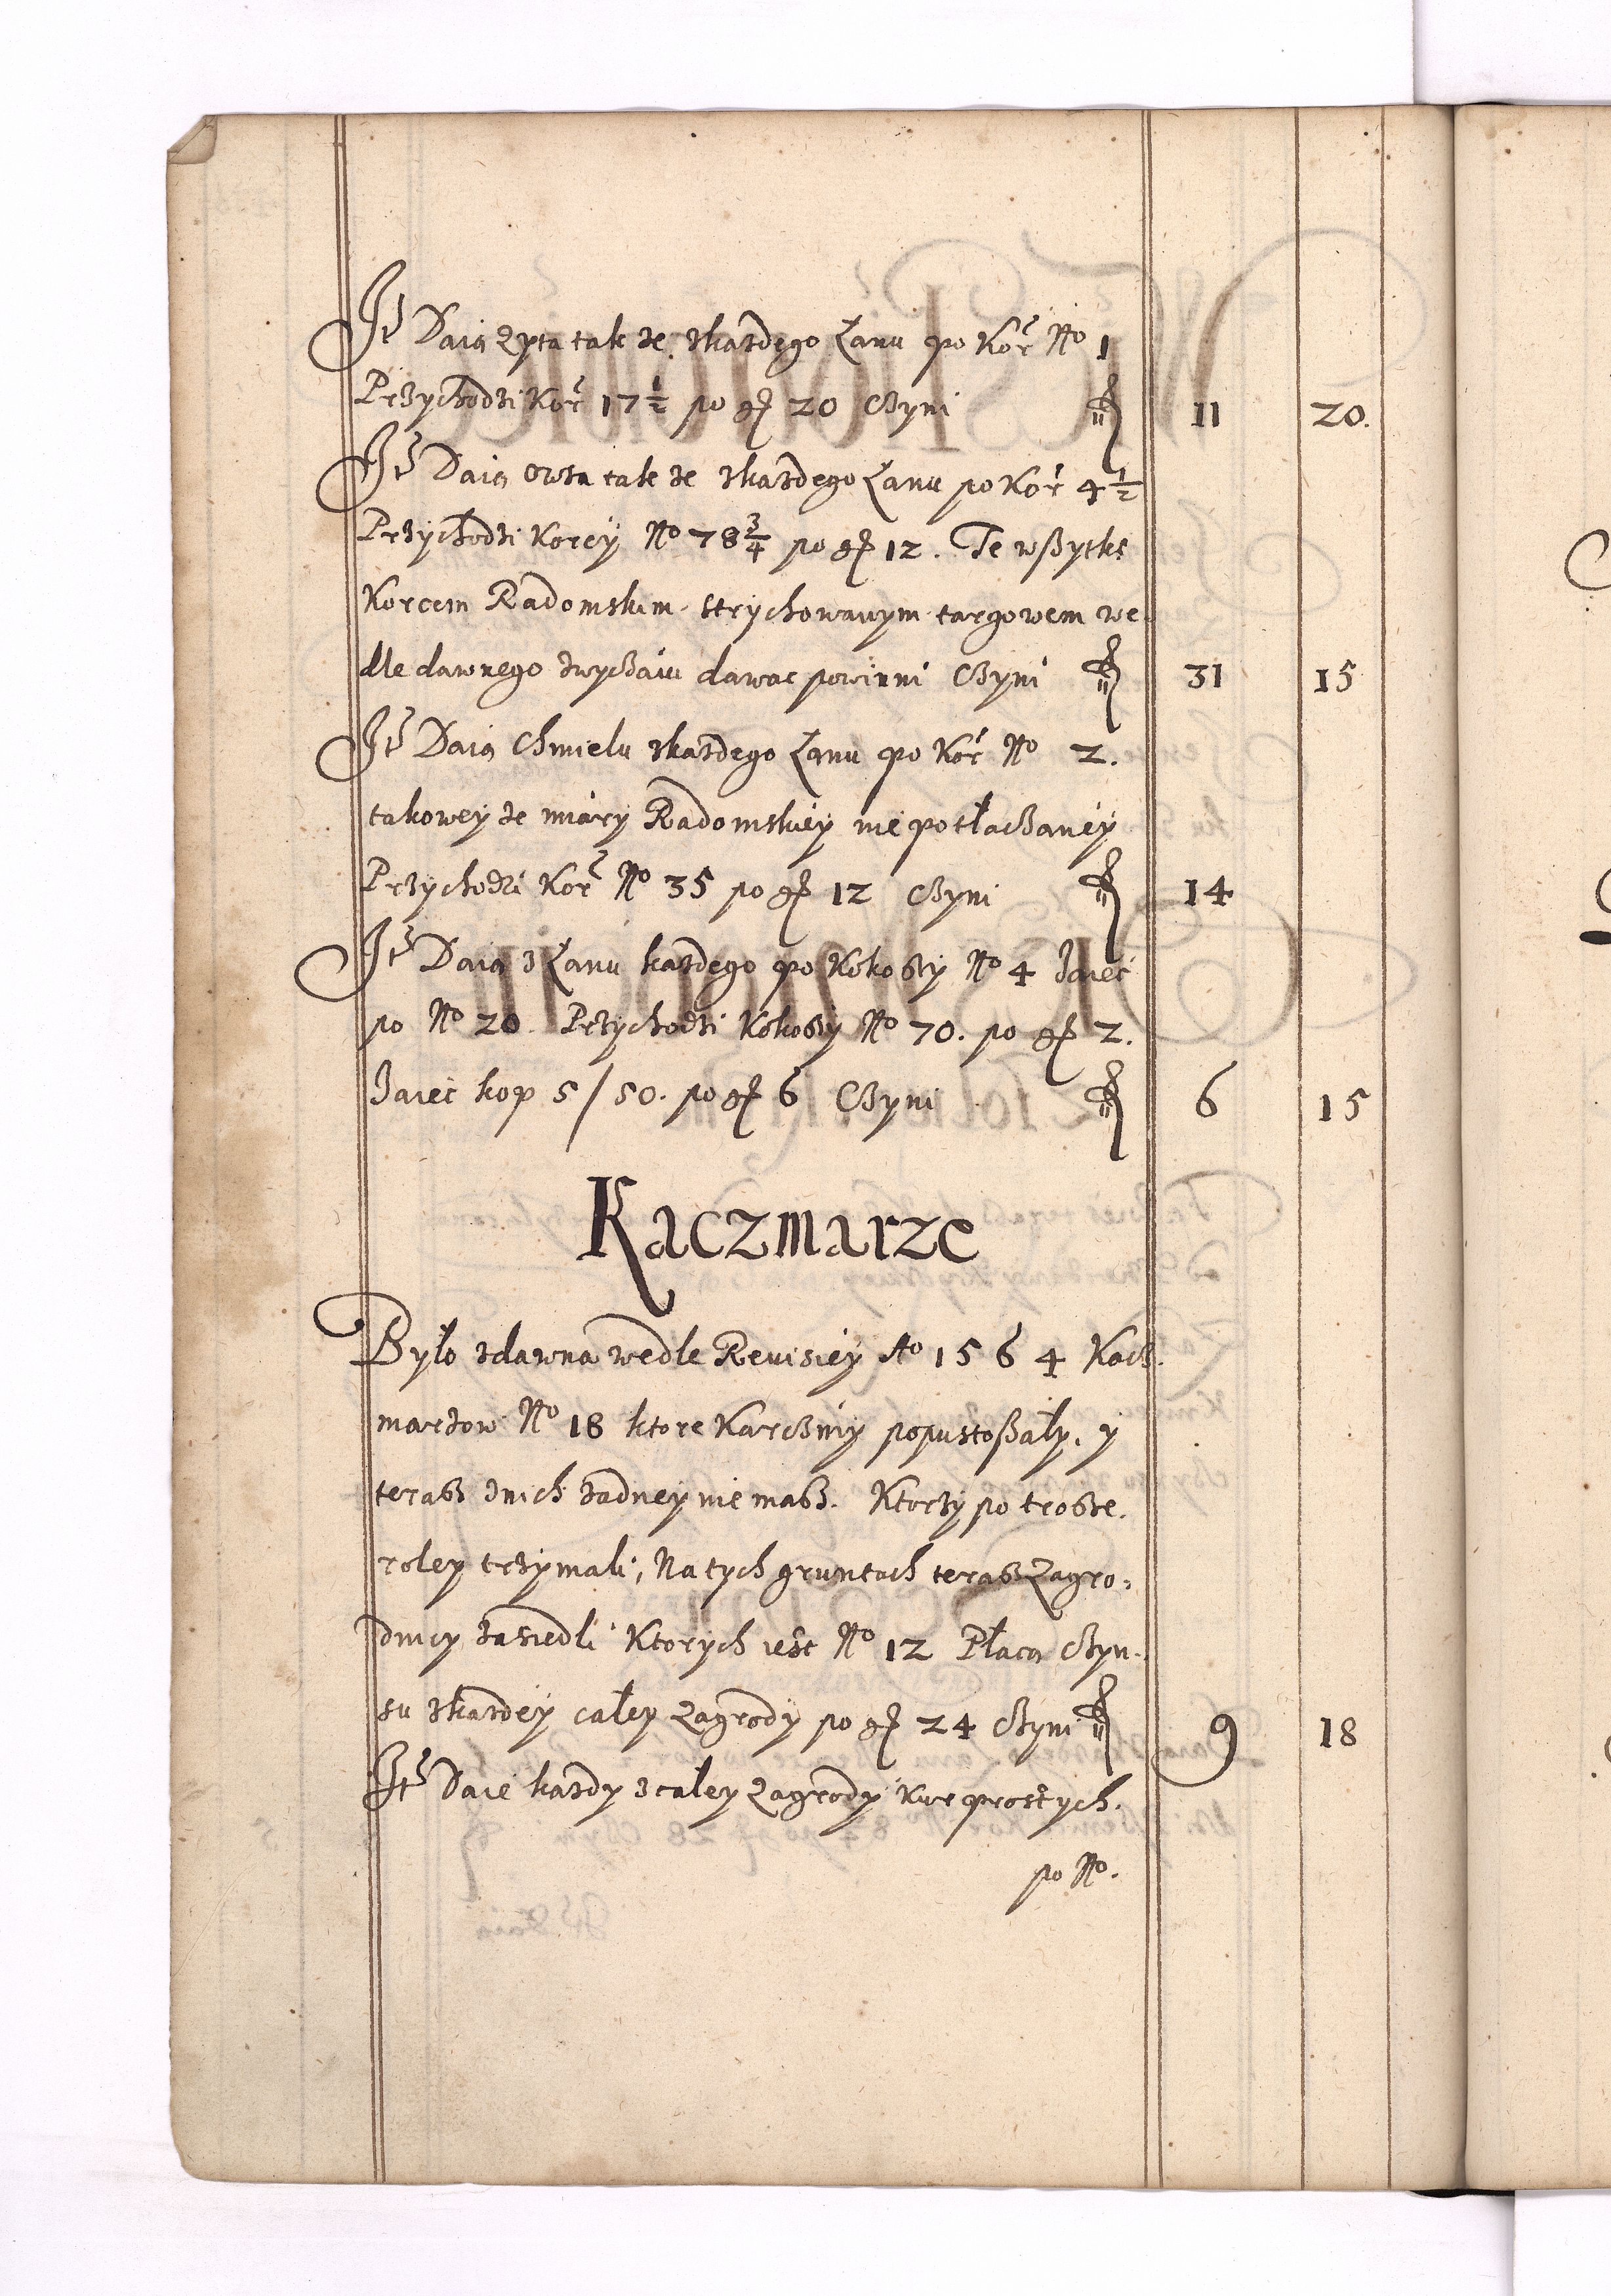 Ite Daią Zyta takze zkazdego Łanu po Kor No 1
Przychodzi Kor 17 1/2 po gr 20 Czyni fl 11 20.
Ite Daią Owsa takze zkazdego Łanu po Kor 4 1/2
Przychodzi Korcy No 78 3/4 po gr 12. Te wszytkę
Korcem Radomskim strychowanym targowem we
dle dawnego zwyczaiu dawac powinni Czyni fl 31 15
Ite Daią Chmielu zkazdego Łanu po Kor No 2.
takowey ze miáry Radomskiey nie potłaczaney
Przychodzi Kor No 35 po gr 12 Czyni fl 14
Ite Daią z Łanu kazdego po Kokoszy No 4 Jaiec
po No 20 Przychodzi Kokoszy No 70. po gr 2.
Jaiec kop 5/50. po gr 6 Czyni fl 6 15
Kaczmarze
Było zdawna wedle Reuisiey Ao 1564 Kacz.
marzow No 18 ktore Karczmy popustoszały. y
terasz znich zadney nie masz. Ktorzy po trosze.
roley trzymali, Na tych gruntach terasz Zagro,
dnicy zasiedli Ktorych iest No 12 Płacą Czyn.
su zkazdey całey Zagrody po gr 24 Czyni fl 9 18
Ite Daie kazdy z całey Zagrody Kur prostych.
po No.